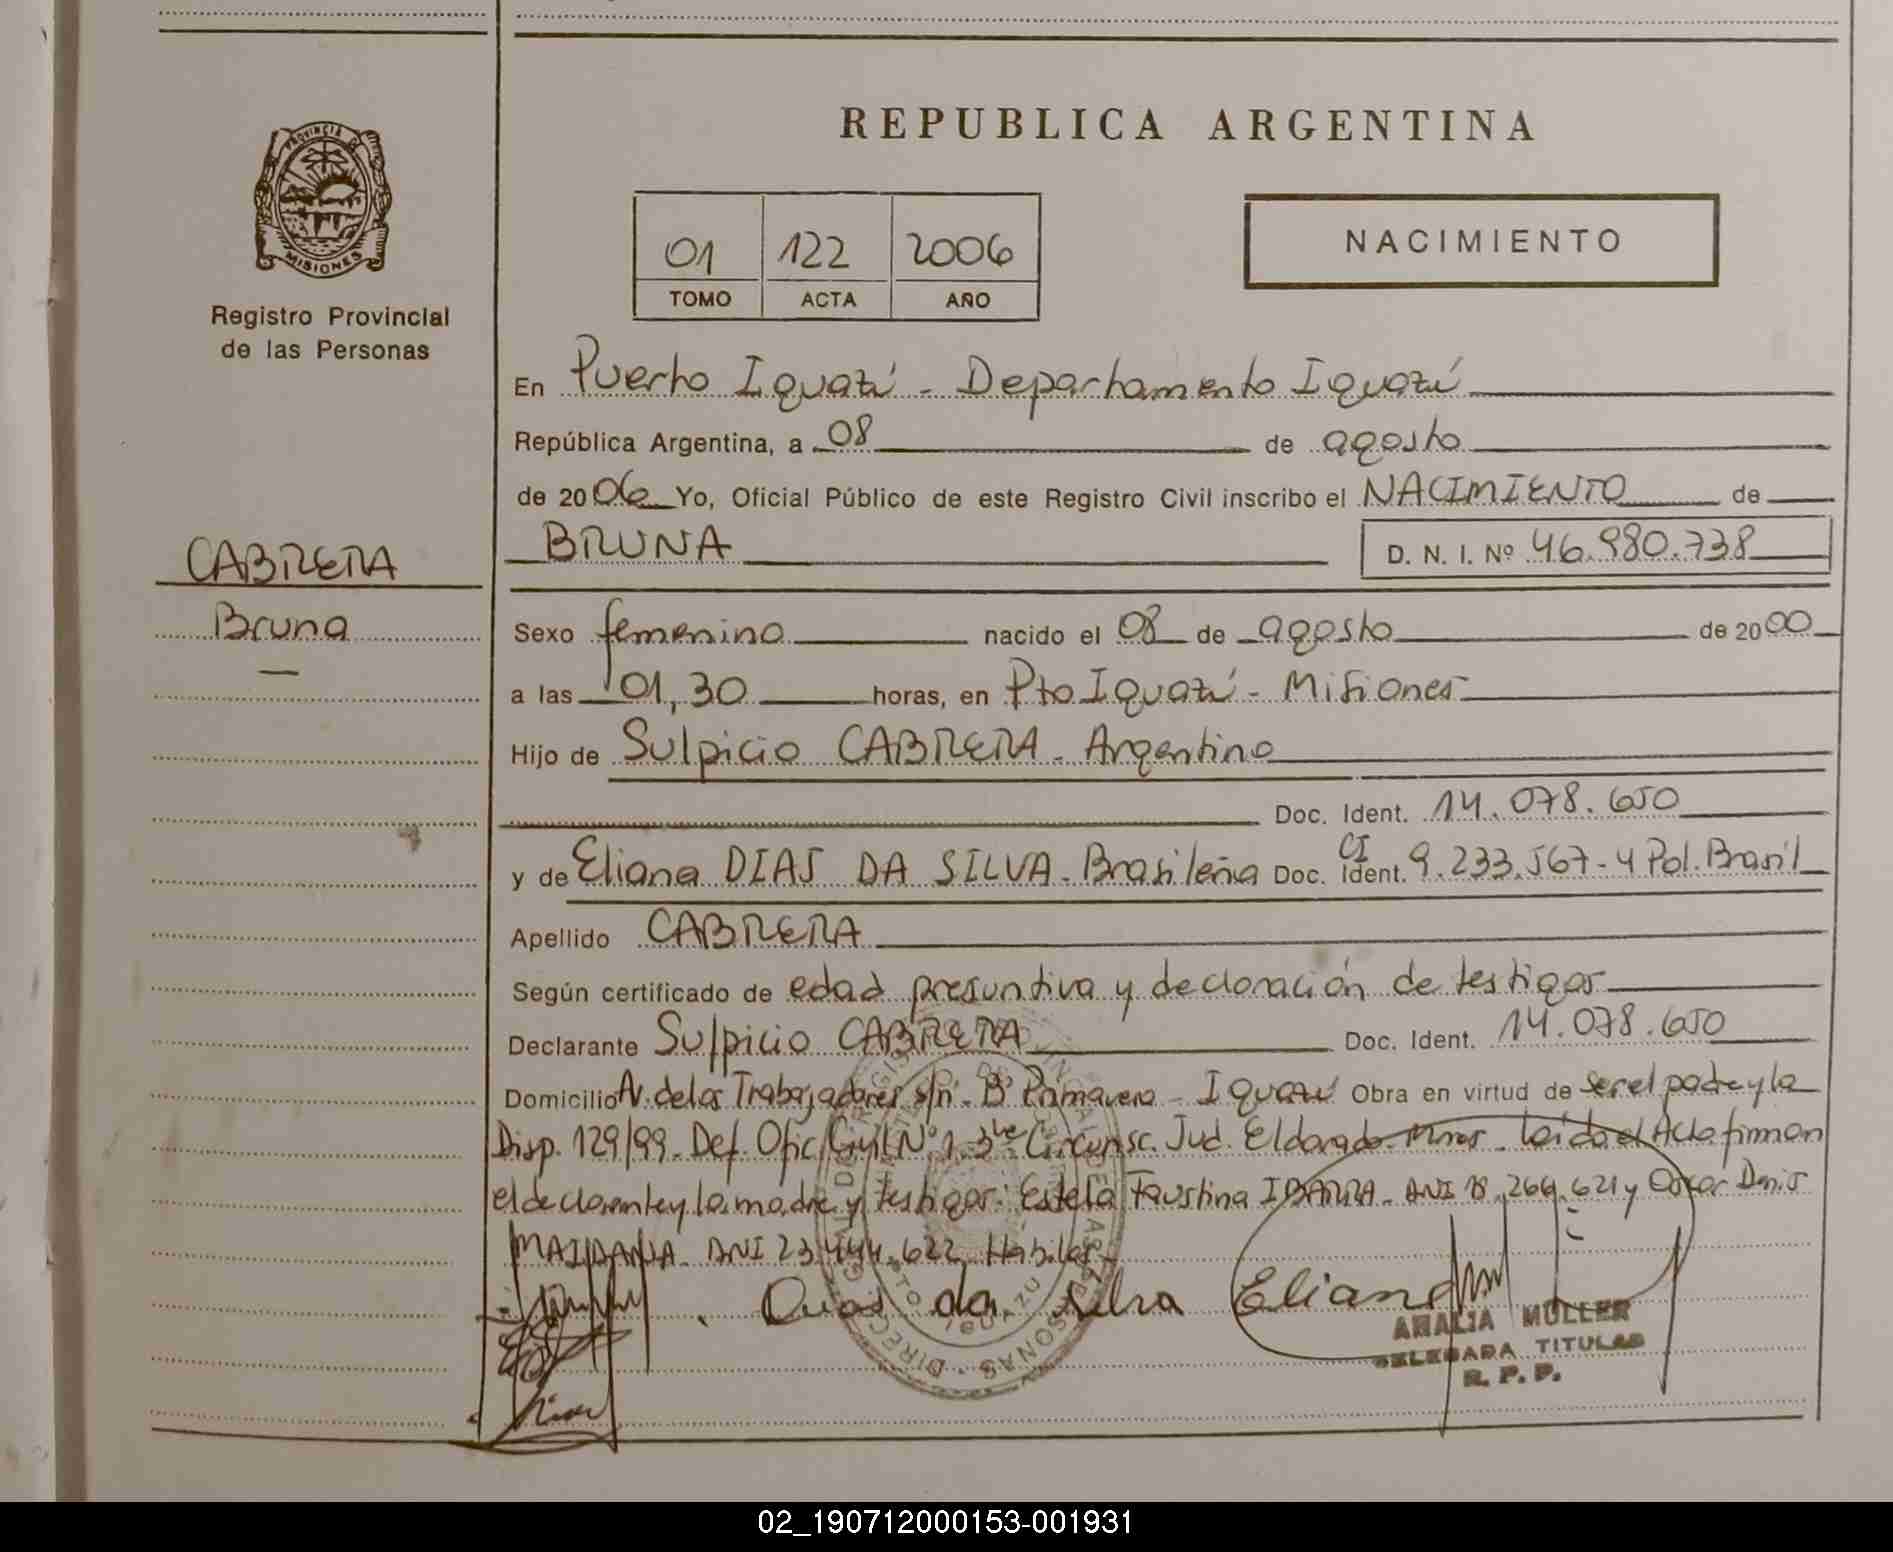 REPUBLICA ARGENTINA
PROVINCIA DE
MISIONES
Registro Provincial
de las Personas
01 122 2006
TOMO ACTA AÑO
NACIMIENTO
En Puerto Iguazú - Departamento Iguazú
República Argentina, a 08 de agosto
de 2006 Yo, Oficial Público de este Registro Civil inscribo el NACIMIENTO de
CABRERA
Bruna
BRUNA D. N. I. Nº 46.980.738
Sexo femenino nacido el 08 de agosto de 2000
a las 01,30 horas, en Pto Iguazú - Misiones
Hijo de Sulpicio CABRERA - Argentino
Doc. Ident. 14.078.650
y de Eliana DIAS DA SILVA - Brasileña Doc. Ident. CI 9.233.567-4 Pol. Brasil
Apellido CABRERA
Según certificado de edad presuntiva y declaración de testigos
Declarante Sulpicio CABRERA Doc. Ident. 14.078.650
Domicilio Av. de los Trabajadores s/n - Bº Primavera - Iguazú Obra en virtud de ser el padre y la
Disp. 129/99. Def. Ofic. Civil Nº 1. 3ra Circunsc. Jud. Eldorado - Mnes. Leída el Acta firman
el declarante y la madre y testigos: Estela Faustina IBARRA - DNI 18.264.621 y Oscar Denis
MAIDANA. DNI 23.444.622 Hábiles
Dias da Silva Eliana
ANALIA MULLER
DELEGADA TITULAR
R. P. P.
02_190712000153-001931